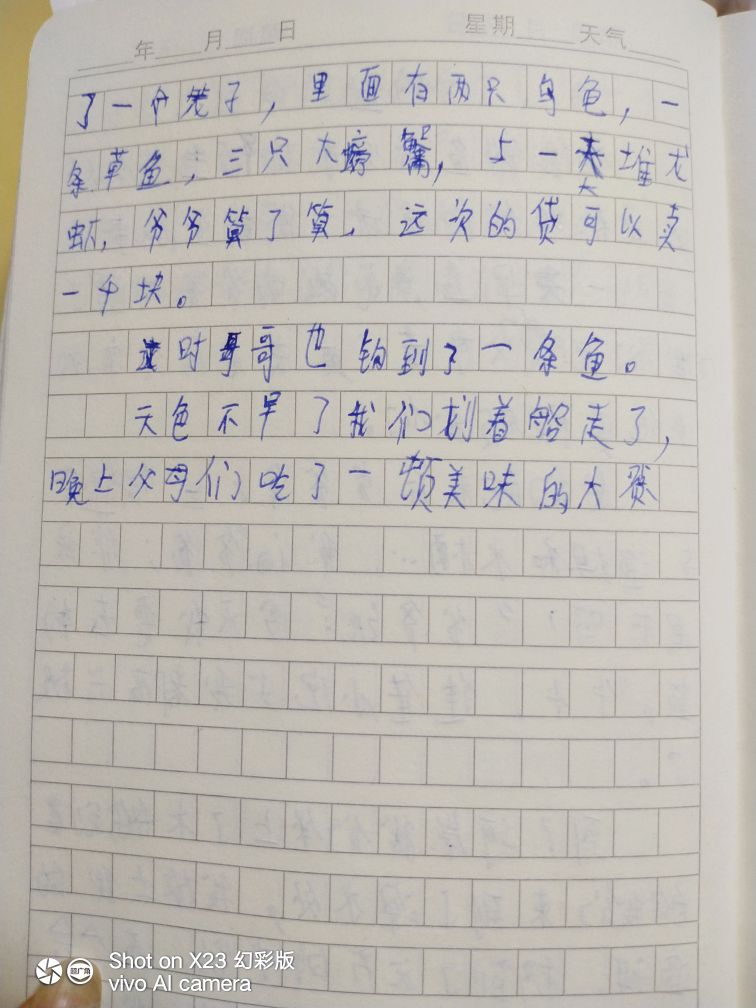 年 月 日 星期 天气
了一个笼子，里面有两只乌龟，一
条草鱼，三只大螃蟹，与一大堆龙
虾，爷爷算了算，这次的货可以卖
一千块。
这时哥哥也钓到了一条鱼。
天色不早了我们划着船走了，
晚上父母们吃了一顿美味的大餐
Shot on X23 幻彩版
vivo AI camera